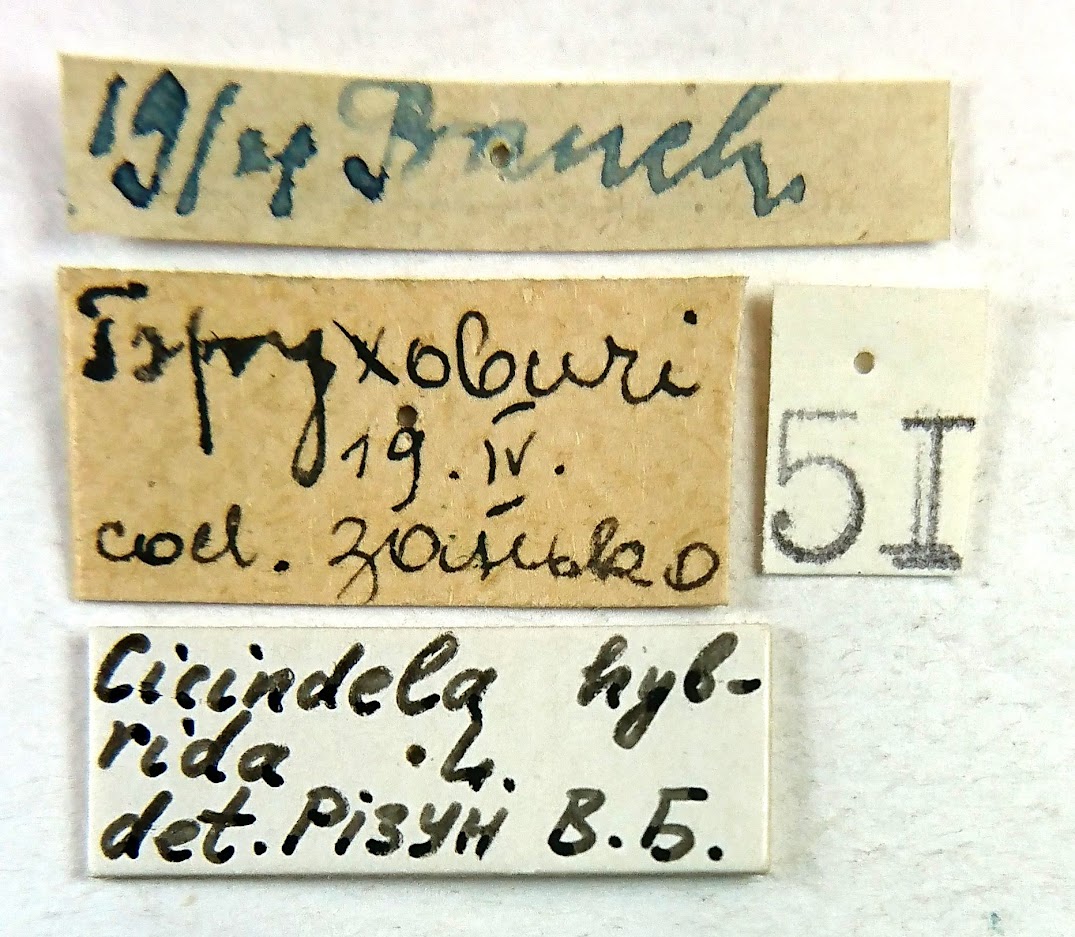 19/IV Bruch.
Брюховичі
19. IV.
coll. Занько
5I
Cicindela hyb-
rida L.
det. Різун В.Б.